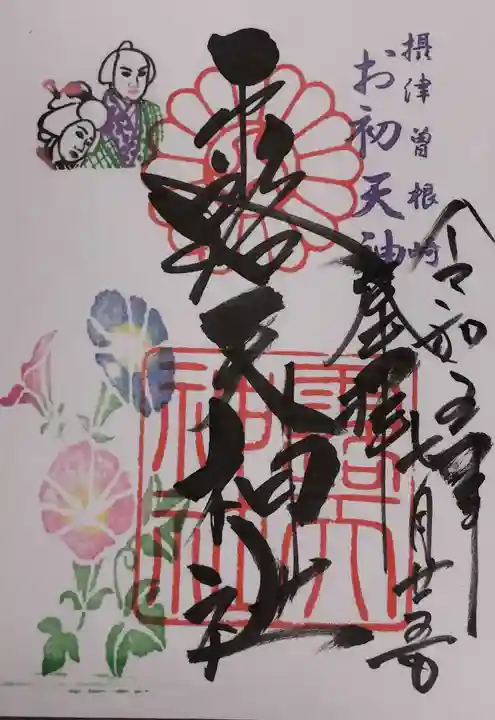 摂津曽根崎
お初天神
令和五年七月廿五日
奉拝
露天神社
露天
神社